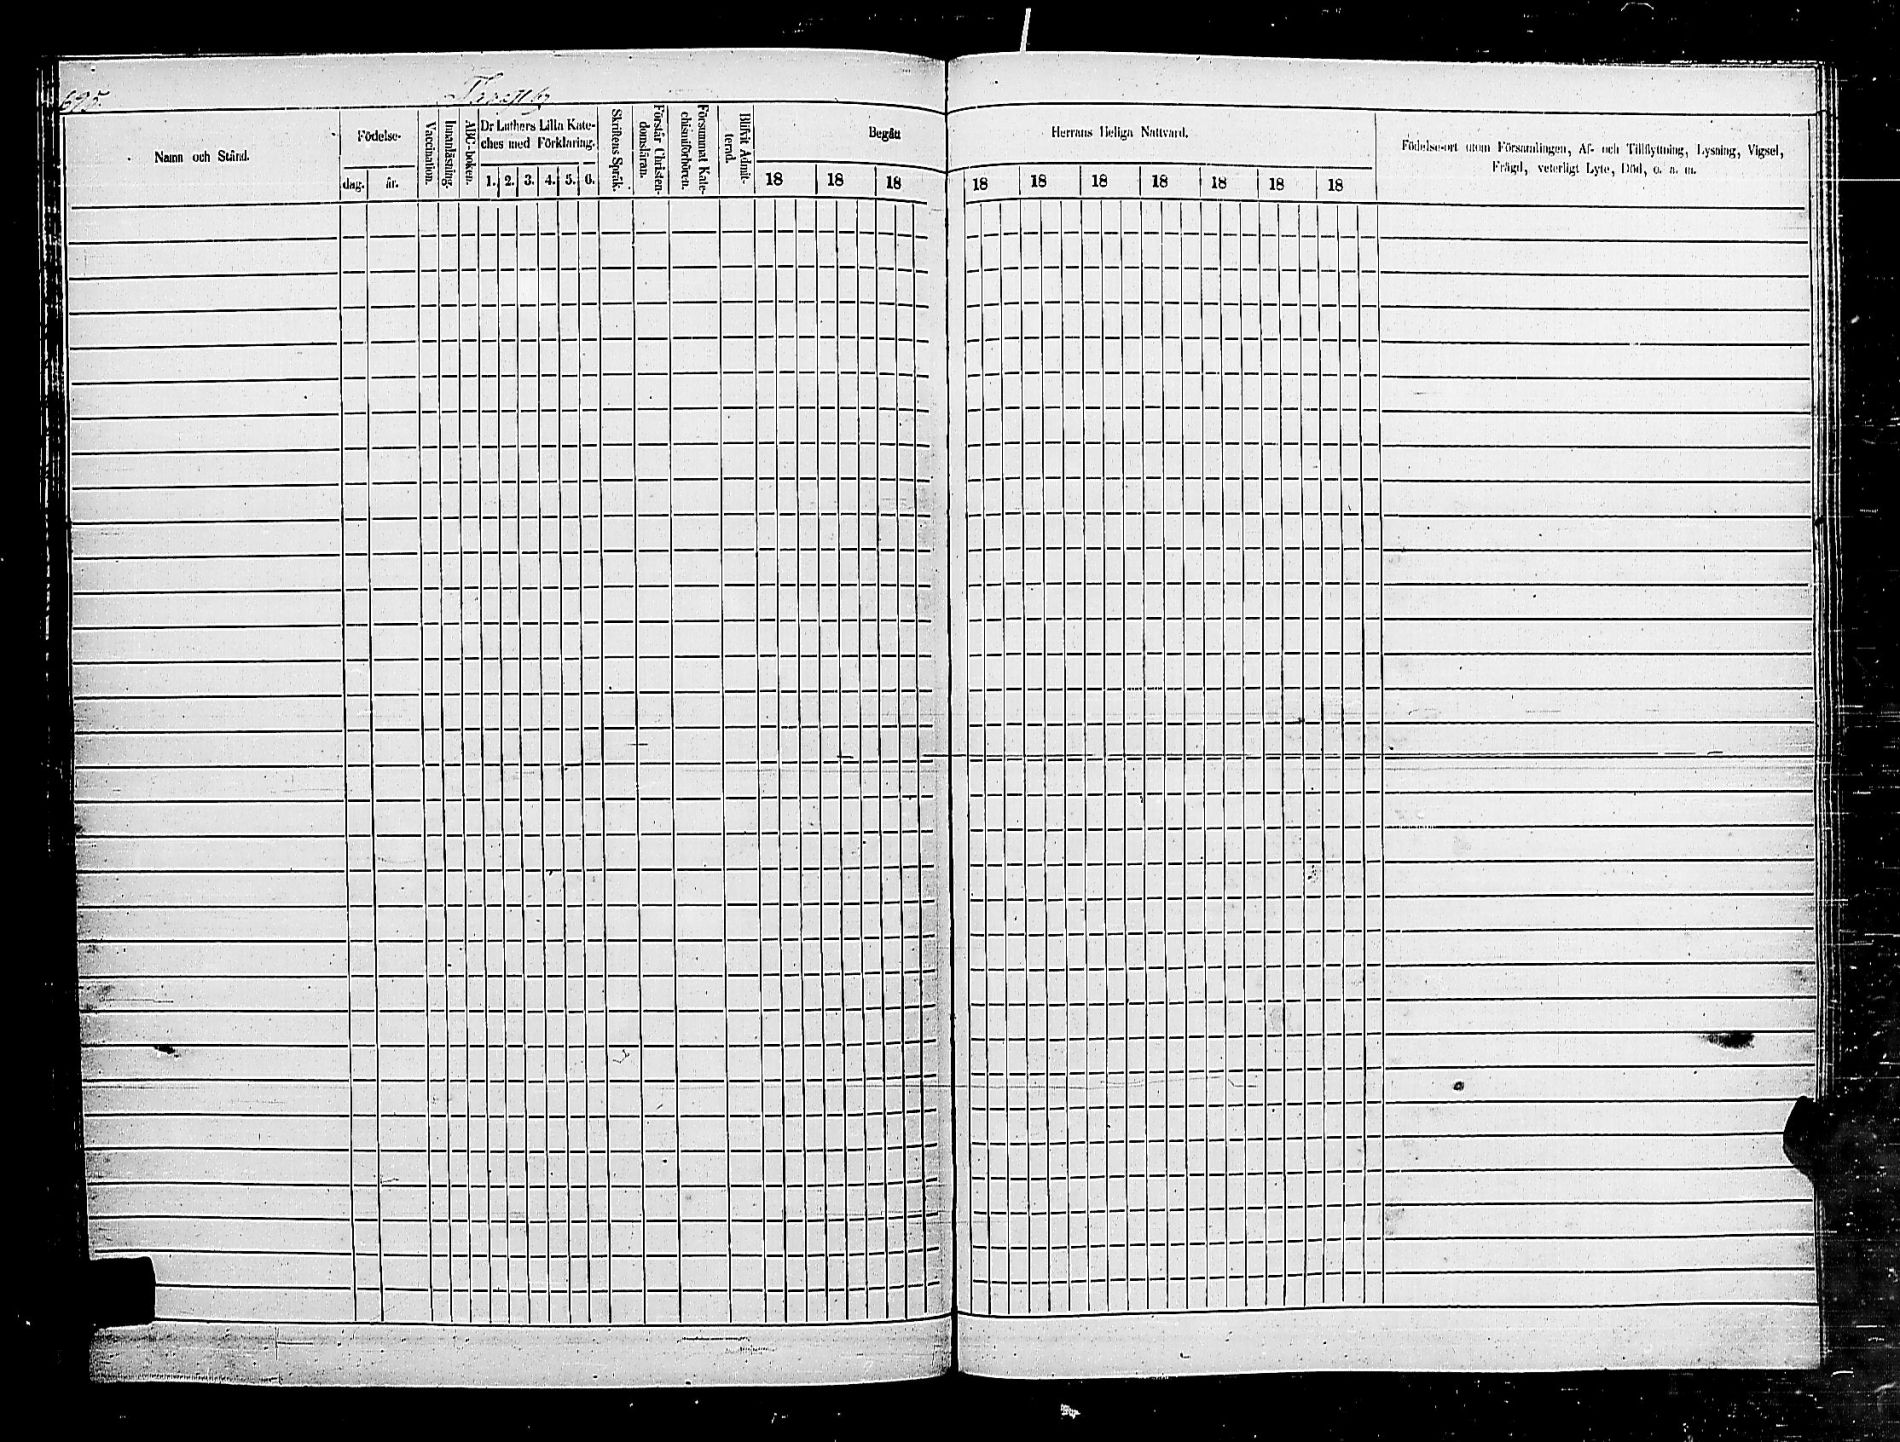 695.
Namn och Stånd.
Födelse-
dag. år.
Vaccination.
Innanläsning.
ABC-boken.
Dr Luthers Lilla Kate-
ches med Förklaring.
1. 2. 3. 4. 5. 6.
Skriftens Språk.
Förstår Christen-
domsläran.
Försummat Kate-
chismiförhören.
Blifvit Admit-
terad.
Begått
18 18 18
Herrans Heliga Nattvard.
18 18 18 18 18 18 18
Födelse-ort utom Församlingen, Af- och Tillflyttning, Lysning, Vigsel,
Frägd, veterligt Lyte, Död, o. s. m.